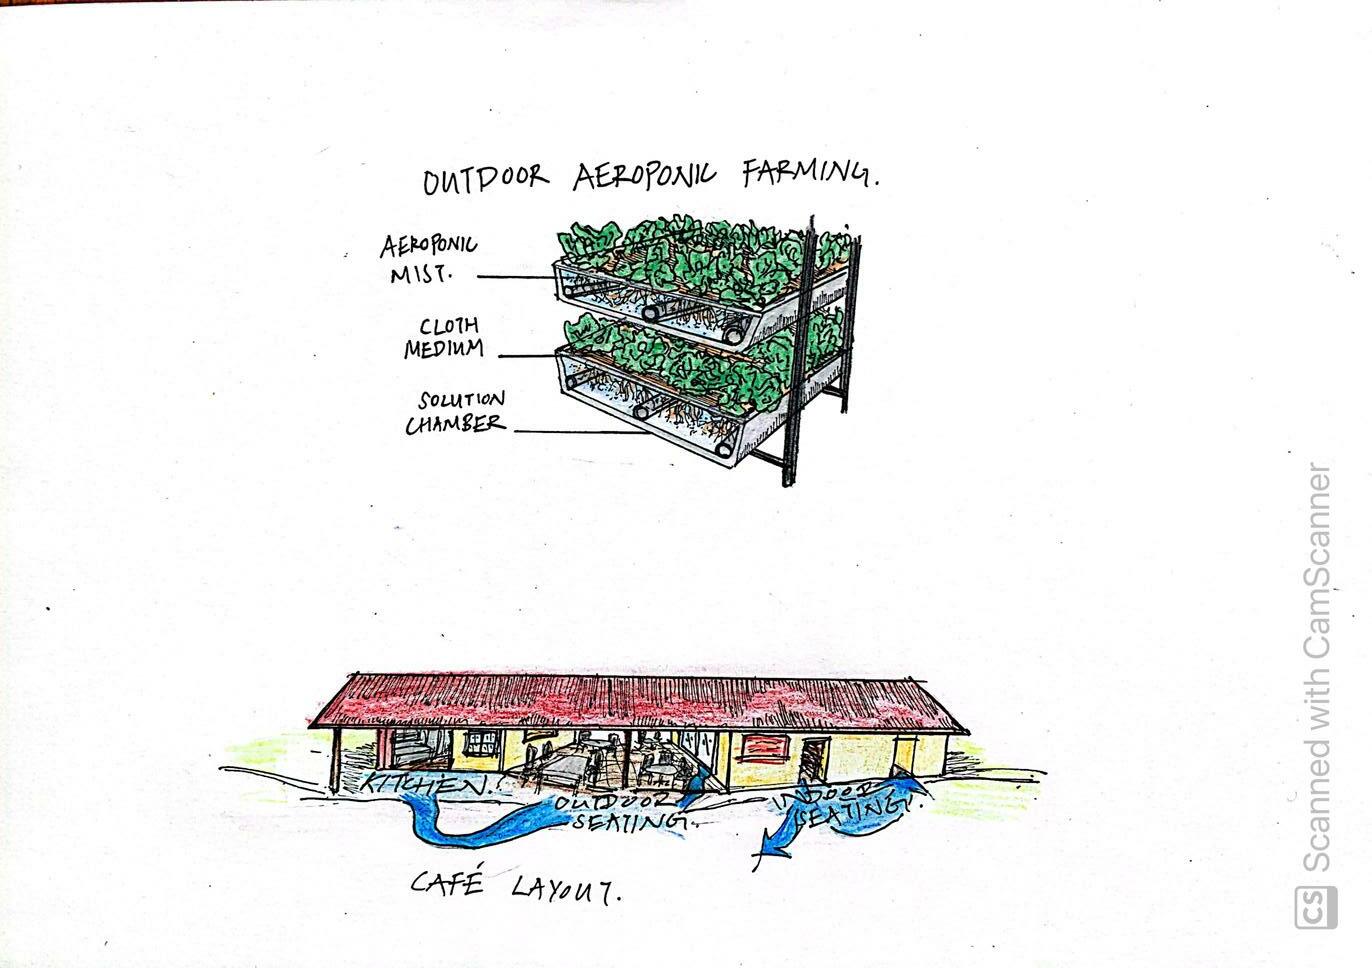 OUTDOOR AEROPONIC FARMING.
AEROPONIC
MIST.
CLOTH
MEDIUM
SOLUTION
CHAMBER
KITCHEN
OUTDOOR
SEATING.
INDOOR
SEATING.
CAFÉ LAYOUT.
CS Scanned with CamScanner